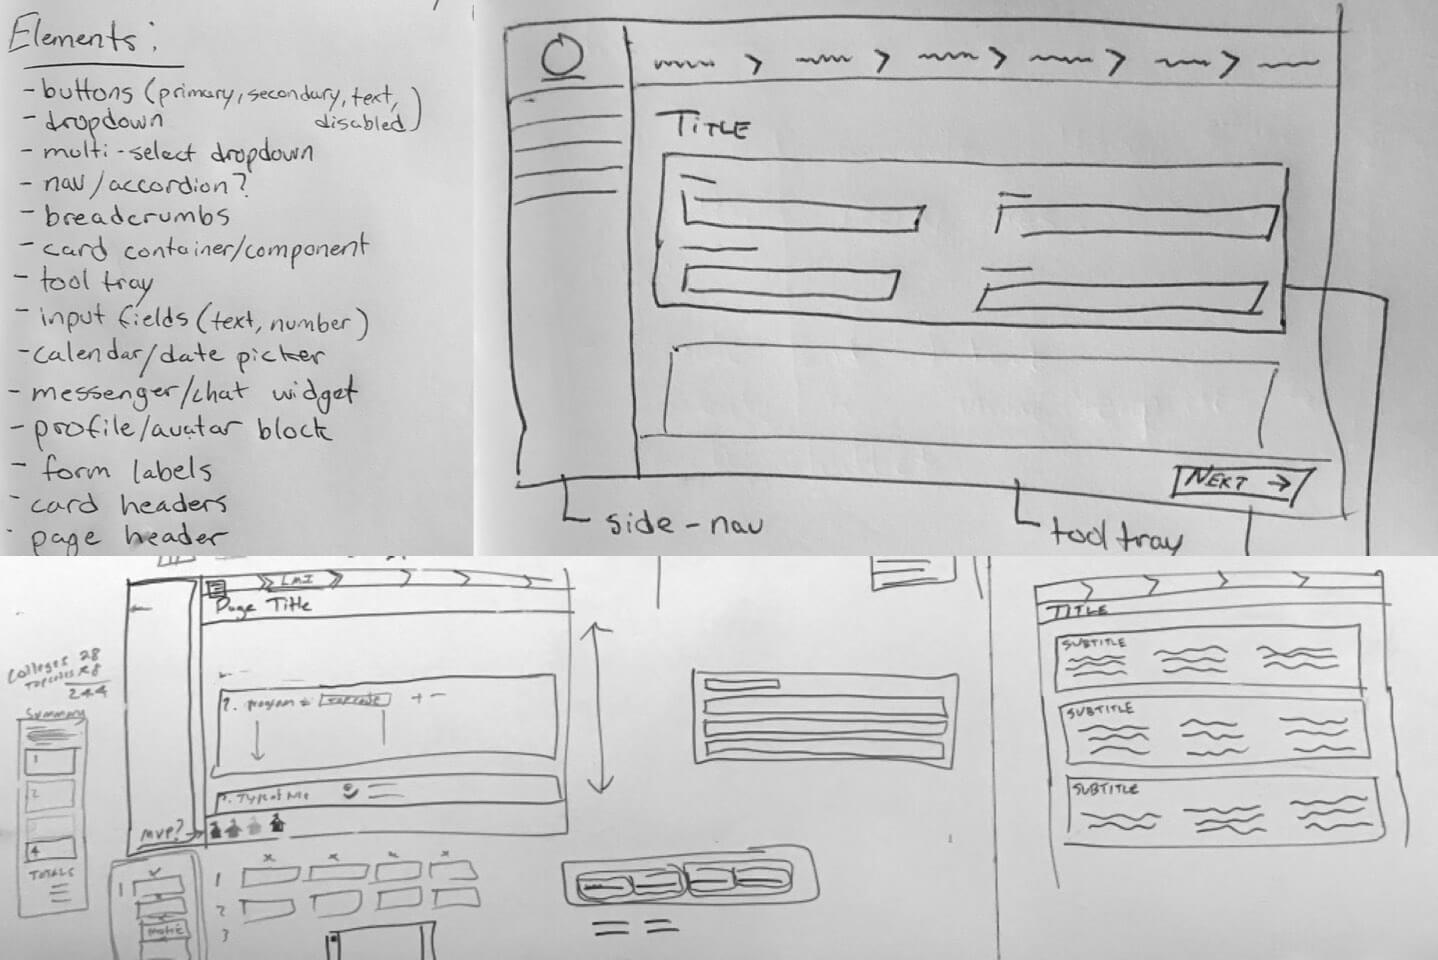 Elements:
- buttons (primary, secondary, text, disabled)
- dropdown
- multi-select dropdown
- nav/accordion?
- breadcrumbs
- card container/component
- tool tray
- input fields (text, number)
- calendar/date picker
- messenger/chat widget
- profile/avatar block
- form labels
- card headers
- page header
TITLE
NEXT →
side-nav
tool tray
LMI
Page Title
Colleges 28
x8
244
Summary
1
2
4
TOTALS
program
+ -
MVP?
1
1
2
3
TITLE
SUBTITLE
SUBTITLE
SUBTITLE